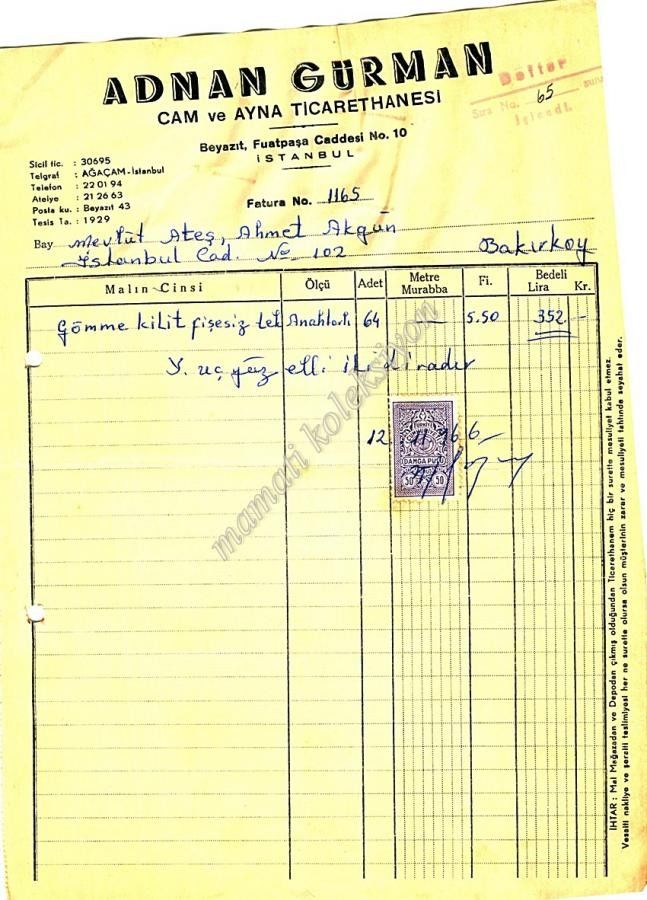 ADNAN GÜRMAN
CAM ve AYNA TİCARETHANESİ
Beyazıt, Fuatpaşa Caddesi No. 10
İSTANBUL
Defter
Sıra No. 65
İşlendi.
Sicil tic. : 30695
Telgraf : AĞAÇAM-İstanbul
Telefon : 22 01 94
Atelye : 21 26 63
Posta ku. : Beyazıt 43
Tesis Ta. : 1929
Fatura No. 1165
Bay Mevlüt Ateş, Ahmet Akgün
İstanbul Cad. No 102 Bakırköy
Malın Cinsi Ölçü Adet Metre Murabba Fi. Bedeli Lira Kr.
Gömme kilit fişesiz tek Anahtarlı 64 — 5.50 352.—
Y. uç yüz elli iki liradır
12.11.966
TÜRKİYE
DAMGA PULU
50 50
mamati koleksiyon
İHTAR : Mal Mağazadan ve Depodan çıkmış olduğundan Ticarethanem hiç bir suretle mesuliyet kabul etmez.
Vesaiti nakliye ve şeraiti teslimiyesi her ne suretle olursa olsun müşterinin zarar ve mesuliyeti tahtında seyahat eder.